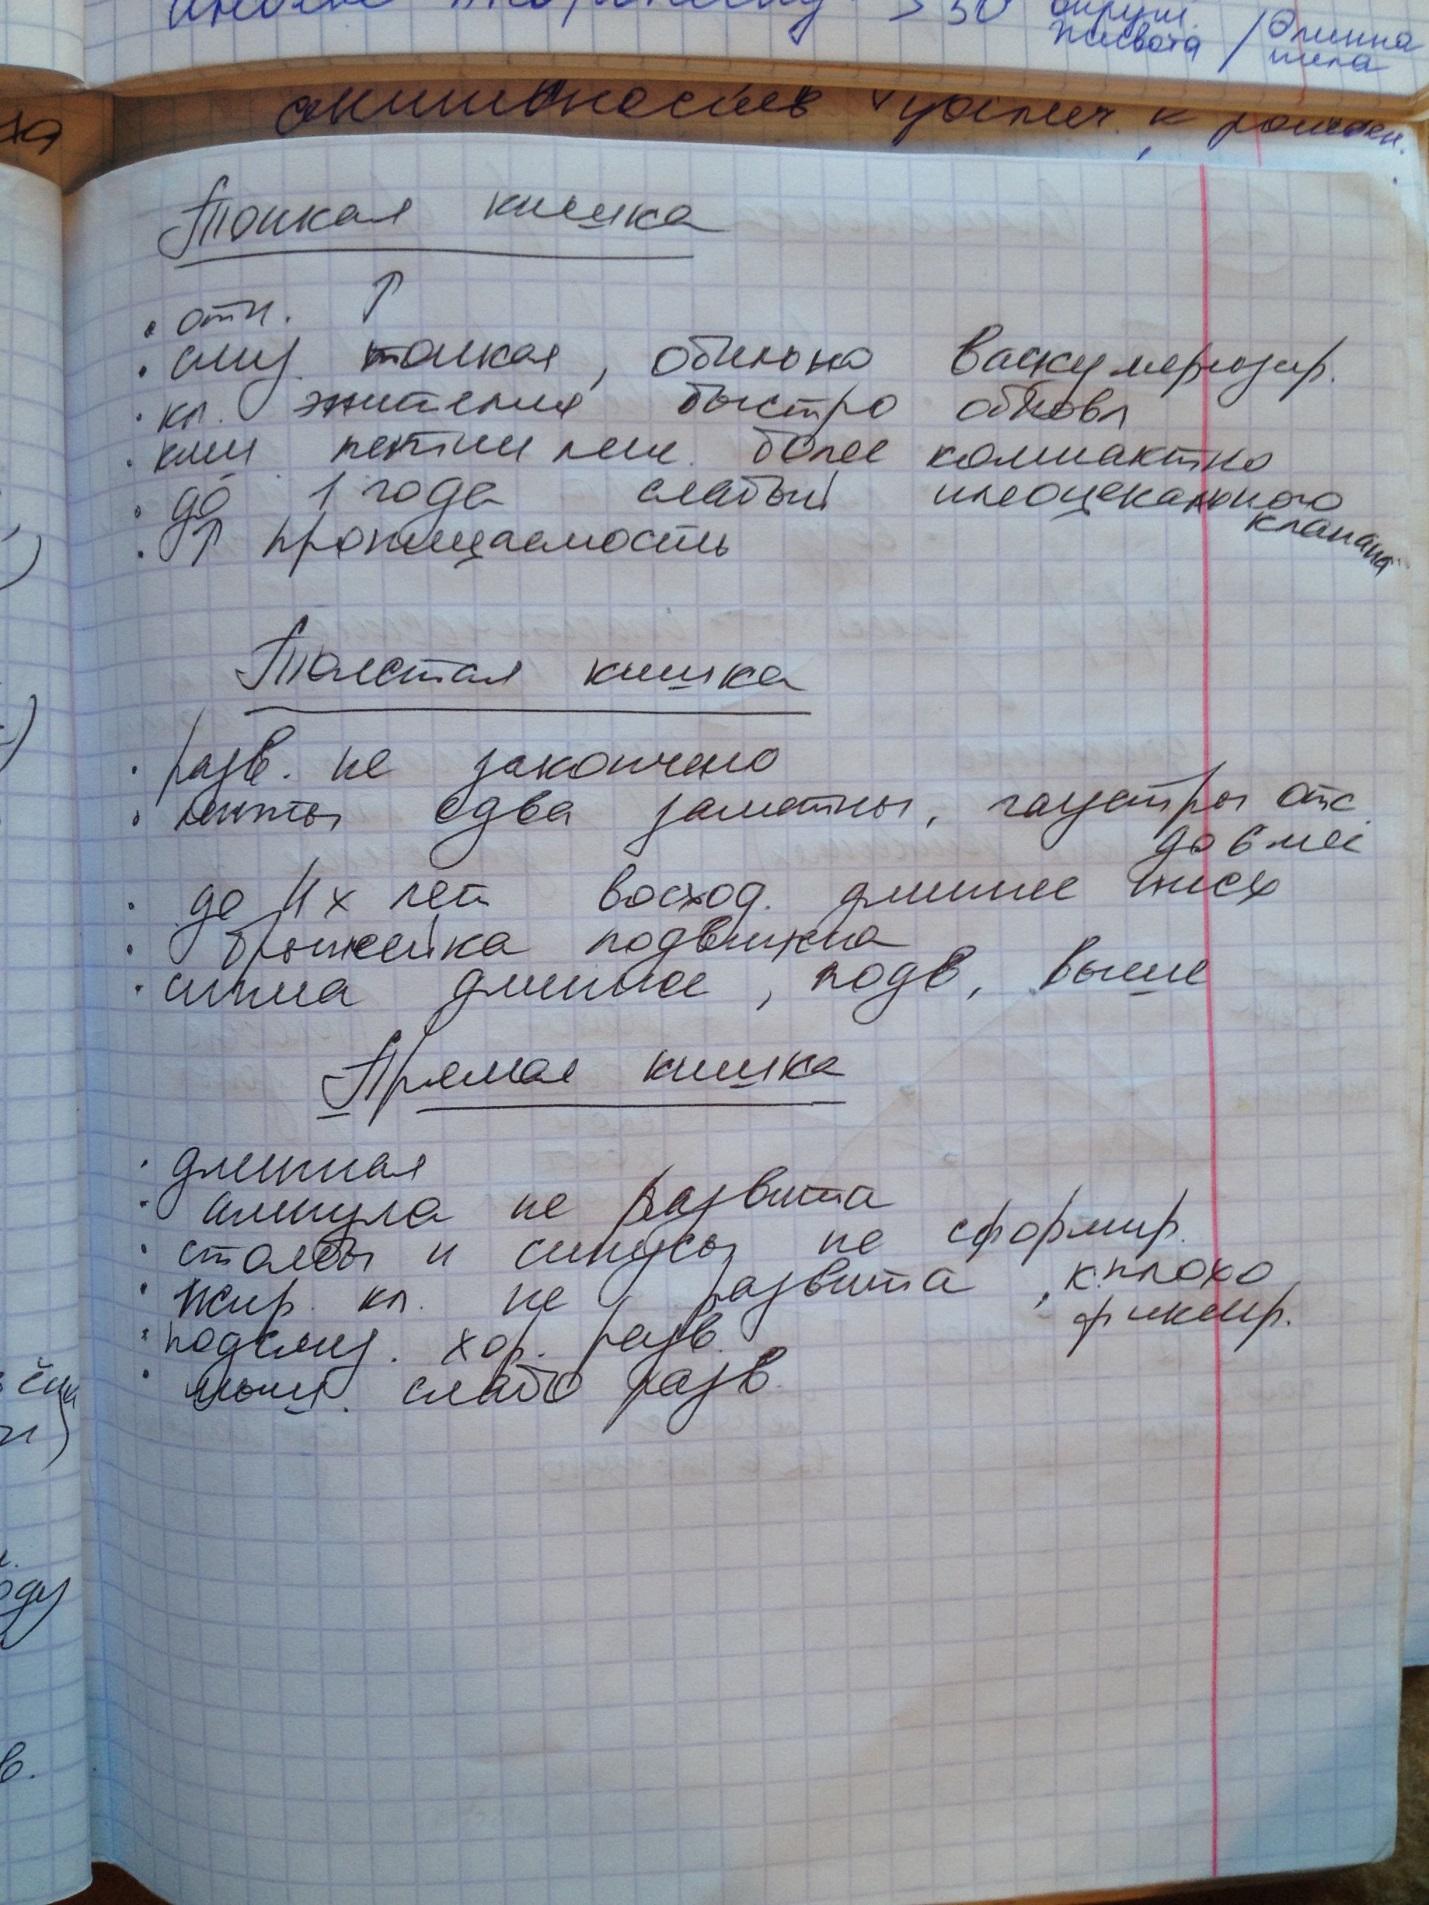 > 30 окруж. живота / Длинна тела
активностев
Тонкая кишка
· отн. ↑
· слиз. тонкая, обильно васкуляризир.
· кл. эпителия быстро обновл
· киш петли леж. более компактно
· до 1 года слабый илеоцекального клапана
· ↑ проницаемость
Толстая кишка
· разв. не закончено
· ленты едва заметны, гаустры отс до 6 мес
· до 4х лет восход. длиннее нисх
· брыжейка подвижна
· сигма длинное, подв, выше
Прямая кишка
· длинная
· ампула не развита
· столбы и синусы не сформир.
· жир. кл. не развита, к. плохо фиксир.
· подслиз. хор. разв.
· мыш. слабо разв.